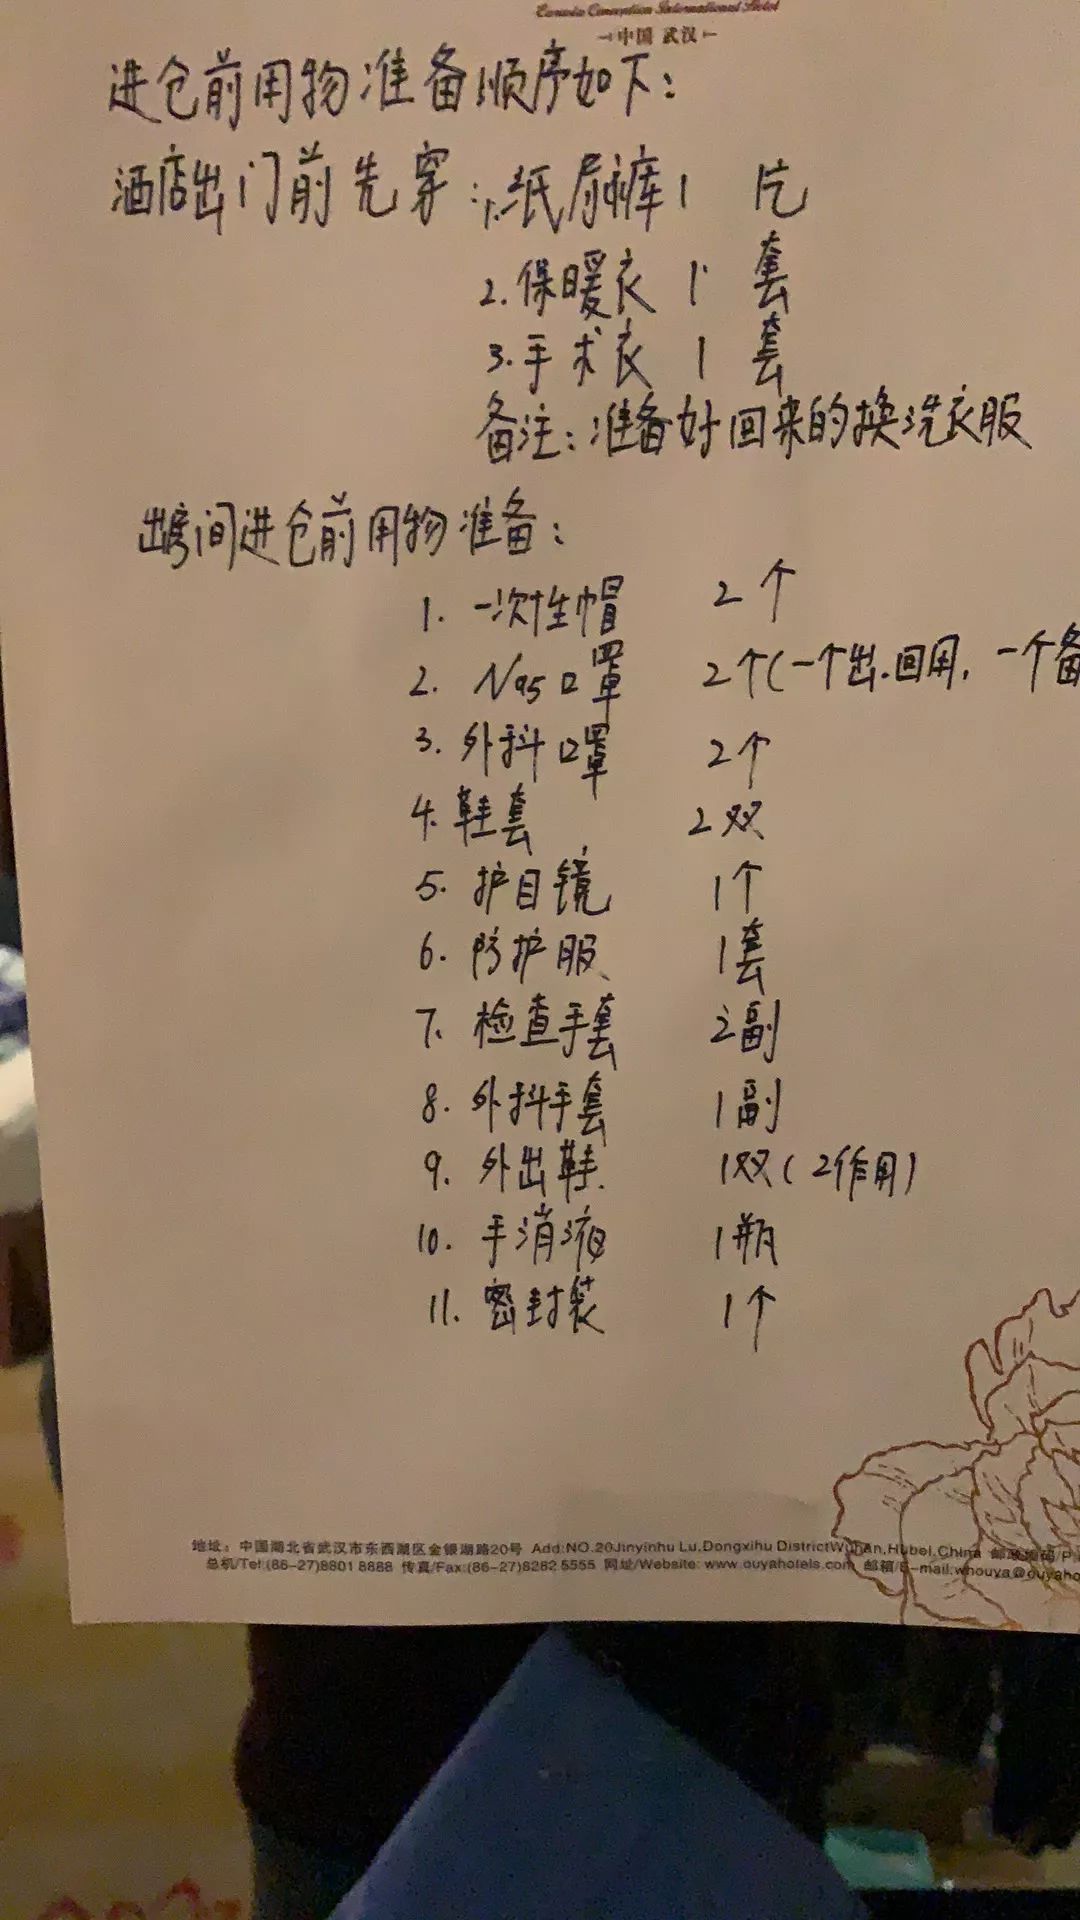 Eurasia Convention International Hotel
中国 武汉
进仓前用物准备顺序如下：
酒店出门前先穿：1.纸尿裤1 片
2.保暖衣 1 套
3.手术衣 1 套
备注：准备好回来的换洗衣服
出房间进仓前用物准备：
1. 一次性帽 2个
2. N95口罩 2个(一个出.回用，一个备
3. 外科口罩 2个
4. 鞋套 2双
5. 护目镜 1个
6. 防护服 1套
7. 检查手套 2副
8. 外科手套 1副
9. 外出鞋 1双(2作用)
10. 手消液 1瓶
11. 密封装 1个
地址：中国湖北省武汉市东西湖区金银湖路20号 Add:NO.20Jinyinhu Lu,Dongxihu DistrictWuhan,Hubei,China 邮政编码/P
总机/Tel:(86-27)8801 8888 传真/Fax:(86-27)8282 5555 网址/Website: www.ouyahotels.com 邮箱/E-mail:whouya@ouyaho